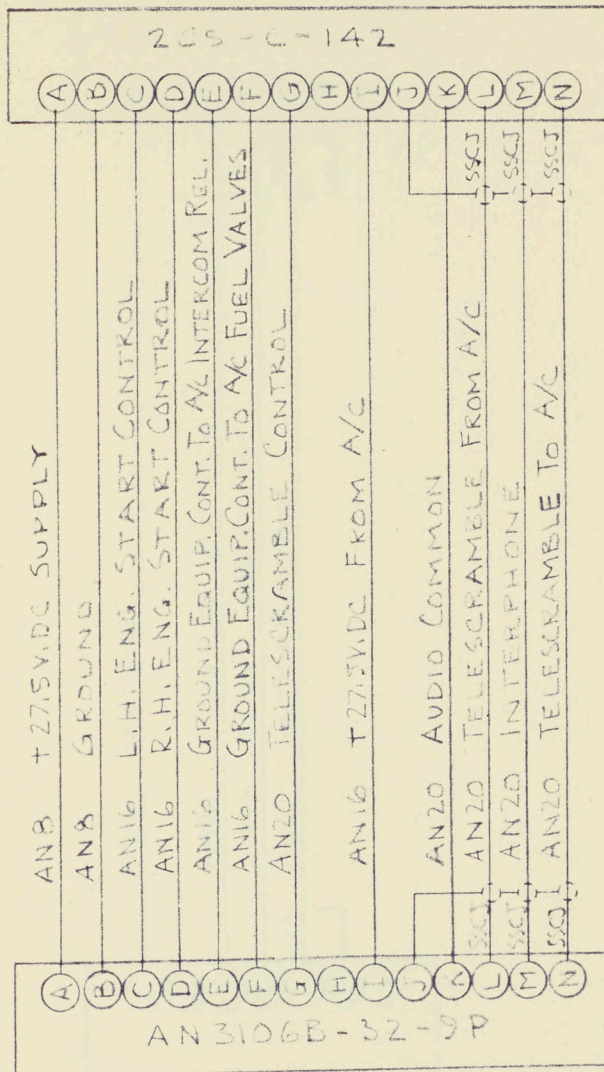 2CS-C-142
A B C D E F G H I J K L M N
AN8 +27.5V.DC SUPPLY
AN8 GROUND
AN16 L.H. ENG. START CONTROL
AN16 R.H. ENG. START CONTROL
AN16 GROUND EQUIP. CONT. TO A/C INTERCOM REL.
AN16 GROUND EQUIP. CONT. TO A/C FUEL VALVES
AN20 TELESCRAMBLE CONTROL
AN16 +27.5V.DC FROM A/C
AN20 AUDIO COMMON
SSCJ AN20 TELESCRAMBLE FROM A/C SSCJ
SSCJ AN20 INTERPHONE SSCJ
SSCJ AN20 TELESCRAMBLE TO A/C SSCJ
A B C D E F G H I J K L M N
AN3106B-32-9P